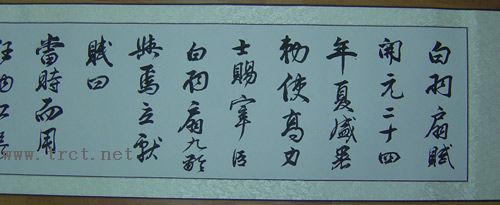 白羽扇賦
開元二十四
年夏盛暑
勑使高力
士賜宰臣
白羽扇九齡
與焉立獻
賦曰
當時而用
www.trct.net